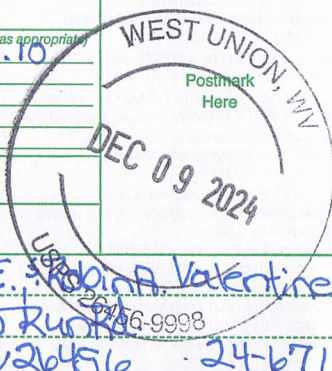 as appropriate)
.10
WEST UNION, WV
Postmark
Here
DEC 09 2024
USPS 26456-9998
E. & Robin A Valentine
Run Rd
26456 . 24-671